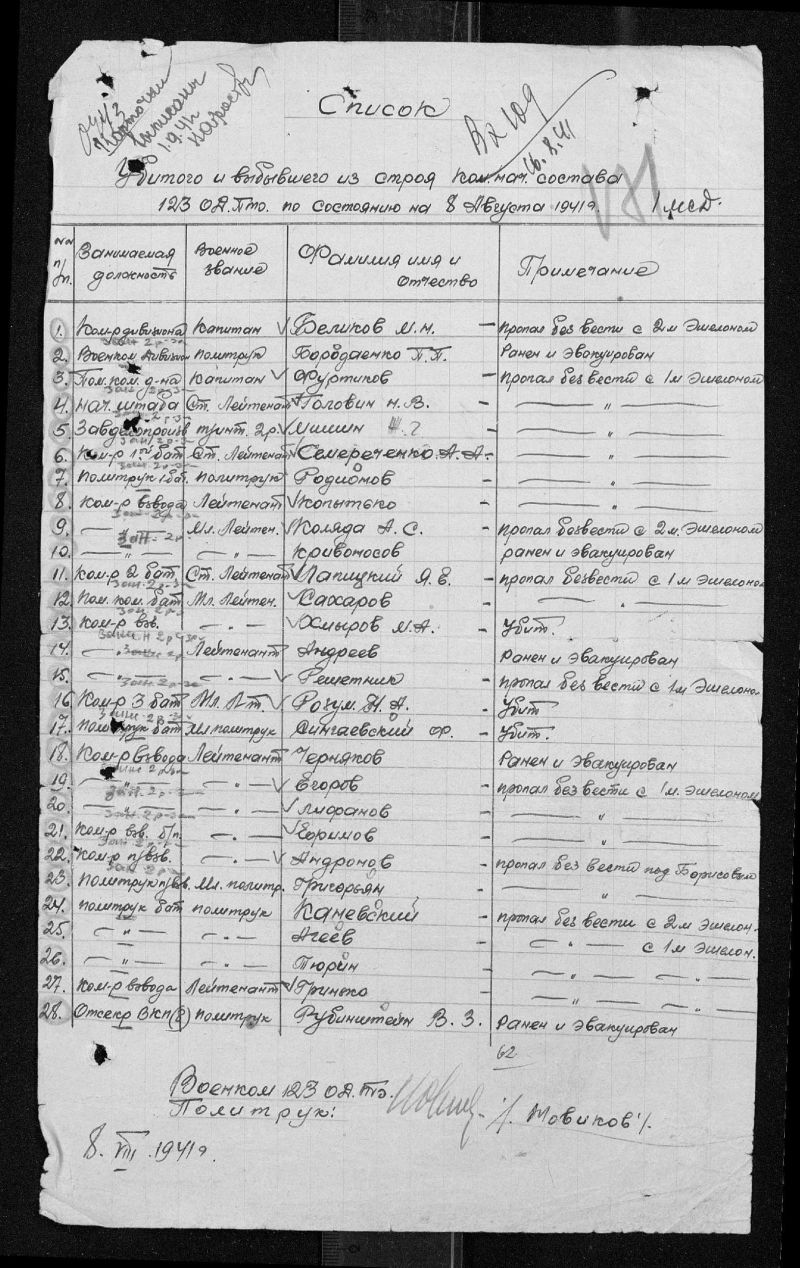 Карточки
выписаны
1.9.41
Список
Вх 109
16.8.41
Убитого и выбывшего из строя Ком.нач. состава
123 ОД.Пто. по состоянию на 8 Августа 1941 г. 1 мсд.
№№ п/п. Занимаемая должность Военное звание Фамилия имя и Отчество Примечание
1. Ком-р дивизиона Капитан Беликов М.Н. — пропал без вести с 2м Эшелоном
2. Военком дивизион политрук Бородаенко П.П. Ранен и Эвакуирован
3. Пом. ком. д-на Капитан Фуртиков — пропал без вести с 1м Эшелоном
4. нач. штаба Ст. Лейтенант Головин Н.В. — — " —
5. Завделопроизв тинт. 2р. Шишин — — " —
6. Ком-р 1ой бат Ст. Лейтенант Семереченко А.А. — — " —
7. Политрук 1 бат. политрук Родионов — — " —
8. Ком-р взвода Лейтенант Копытько — — " —
9. — " — Мл. Лейтен. Коляда А.С. — пропал безвести с 2м. Эшелоном
10. — " — — " — Кривоносов ранен и эвакуирован
11. Ком-р 2 бат Ст. Лейтенант Лапицкий Я.Е. — пропал безвести с 1м Эшелоном
12. Пом. ком. бат Мл. Лейтен. Сахаров — — " —
13. Ком-р взв. — " — Хмыров М.А. — Убит.
14. — " — Лейтенант Андреев Ранен и эвакуирован
15. — " — — " — Решетник — пропал без вести с 1м Эшелоно
16 Ком-р 3 бат Мл. Л-т. Розум Н.А. — Убит
17. политрук бат Мл политрук Сингаевский Ф. — Убит.
18. Ком-р взвода Лейтенант Черняков Ранен и Эвакуирован
19. — " — — " — Егоров — пропал без вести с 1м. Эшелоном
20. — " — — " — Лифанов — — " —
21. Ком-р взв. б/п. — " — Ефимов — — " —
22. Ком-р п/взв. — " — Андронов — пропал без вести под Борисовым
23. Политрук п/взв. Мл. политр. Григорьян — — " —
24. политрук бат политрук Каневский — пропал без вести с 2м Эшелон.
25. — " — — " — Агеев — — " — с 1м Эшелон.
26. — " — — " — Тюрин — — " — — " —
27. Ком-р взвода Лейтенант Гринько — — " — — " —
28. Отсекр ВКП(б) политрук Рубинштейн В.З. Ранен и Эвакуирован
62
Военком 123 ОД. Пто.
Политрук: /. Новиков /.
8. VIII. 1941 г.